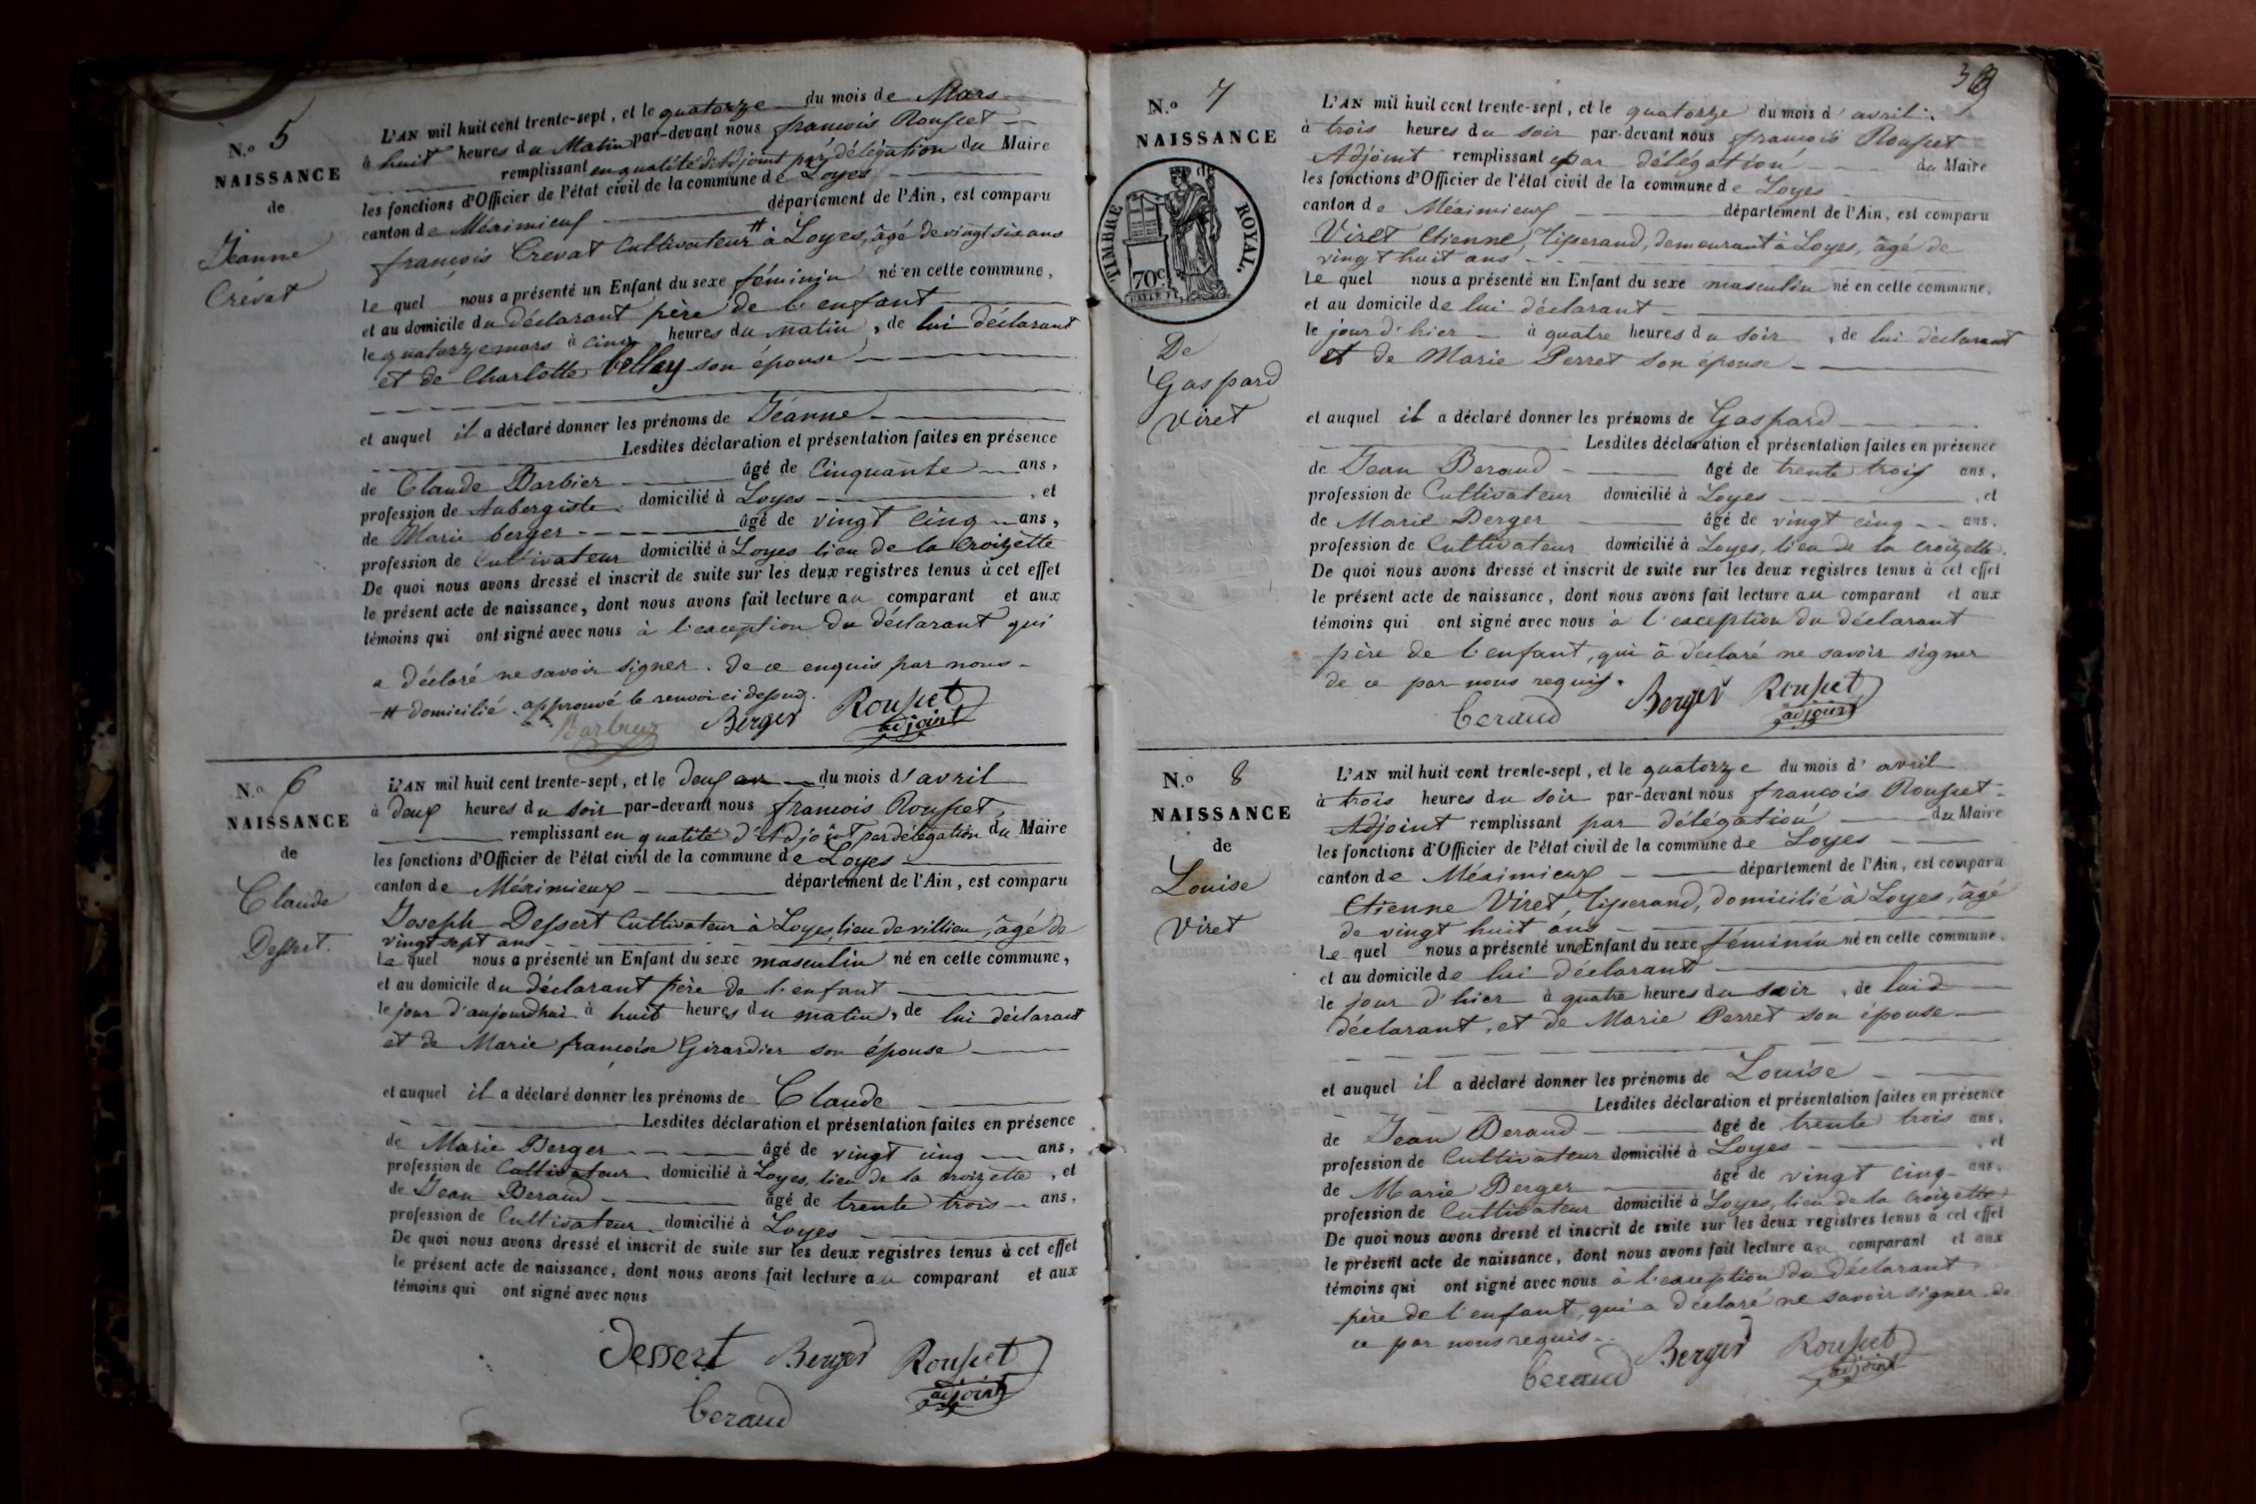 N.o 5
NAISSANCE
de
Jeanne
Crévat
L'AN mil huit cent trente-sept, et le quatorze du mois de Mars
à huit heures du Matin par-devant nous françois Rousset
remplissant en qualité d'Adjoint par délégation du Maire
les fonctions d'Officier de l'état civil de la commune de Loyes
canton de Méximieux département de l'Ain, est comparu
françois Crevat Cultivateur # à Loyes, âgé de vingt six ans
le quel nous a présenté un Enfant du sexe féminin né en cette commune,
et au domicile du déclarant père de l'enfant
le quatorze mars à cinq heures du matin, de lui déclarant
et de Charlotte bellay son épouse
et auquel il a déclaré donner les prénoms de Jéanne
Lesdites déclaration et présentation faites en présence
de Claude Barbier âgé de Cinquante ans,
profession de Aubergiste domicilié à Loyes, et
de Marie berger âgé de vingt cinq ans,
profession de Cultivateur domicilié à Loyes lieu de la Croizette
De quoi nous avons dressé et inscrit de suite sur les deux registres tenus à cet effet
le présent acte de naissance, dont nous avons fait lecture au comparant et aux
témoins qui ont signé avec nous à l'exception du déclarant qui
a déclaré ne savoir signer. de ce enquis par nous
# domicilié. approuvé le renvoi ci dessus.
Barbier Berger Rousset
adjoint
N.o 6
NAISSANCE
de
Claude
Dessert.
L'AN mil huit cent trente-sept, et le deux du mois d'avril
à deux heures du soir par-devant nous françois Rousset,
remplissant en qualité d'Adjoint par délégation du Maire
les fonctions d'Officier de l'état civil de la commune de Loyes
canton de Méximieux département de l'Ain, est comparu
Joseph Dessert Cultivateur à Loyes, lieu de villieu, âgé de
vingt sept ans
Le quel nous a présenté un Enfant du sexe masculin né en cette commune,
et au domicile du déclarant père de l'enfant
le jour d'aujourdhui à huit heures du matin, de lui déclarant
et de Marie françoise Girardier son épouse
et auquel il a déclaré donner les prénoms de Claude
Lesdites déclaration et présentation faites en présence
de Marie Berger âgé de vingt cinq ans,
profession de Cultivateur domicilié à Loyes, lieu de la croizette, et
de Jean Beraud âgé de trente trois ans,
profession de Cultivateur domicilié à Loyes
De quoi nous avons dressé et inscrit de suite sur les deux registres tenus à cet effet
le présent acte de naissance, dont nous avons fait lecture au comparant et aux
témoins qui ont signé avec nous
Dessert Berger Rousset
adjoint
beraud
N.o 7
NAISSANCE
de
TIMBRE ROYAL.
70c
De
Gaspard
Viret
L'AN mil huit cent trente-sept, et le quatorze du mois d'avril
à trois heures du soir par-devant nous françois Rousset
Adjoint remplissant par délégation du Maire
les fonctions d'Officier de l'état civil de la commune de Loyes
canton de Méximieux département de l'Ain, est comparu
Viret Etienne, Tisserand, demeurant à Loyes, âgé de
vingt huit ans
Le quel nous a présenté un Enfant du sexe masculin né en cette commune,
et au domicile de lui déclarant
le jour d'hier à quatre heures du soir, de lui déclarant
et de Marie Perret son épouse
et auquel il a déclaré donner les prénoms de Gaspard
Lesdites déclaration et présentation faites en présence
de Jean Beraud âgé de trente trois ans,
profession de Cultivateur domicilié à Loyes, et
de Marie Berger âgé de vingt cinq ans,
profession de Cultivateur domicilié à Loyes, lieu de la croizette.
De quoi nous avons dressé et inscrit de suite sur les deux registres tenus à cet effet
le présent acte de naissance, dont nous avons fait lecture au comparant et aux
témoins qui ont signé avec nous à l'exception du déclarant
père de l'enfant, qui à déclaré ne savoir signer
de ce par nous requis.
beraud Berger Rousset
adjoint
N.o 8
NAISSANCE
de
Louise
Viret
L'AN mil huit cent trente-sept, et le quatorze du mois d'avril
à trois heures du soir par-devant nous françois Rousset
Adjoint remplissant par délégation du Maire
les fonctions d'Officier de l'état civil de la commune de Loyes
canton de Méximieux département de l'Ain, est comparu
Etienne Viret, Tisserand, domicilié à Loyes, âgé
de vingt huit ans
Le quel nous a présenté un Enfant du sexe féminin né en cette commune,
et au domicile de lui déclarant
le jour d'hier à quatre heures du soir, de lui d
déclarant, et de Marie Perret son épouse
et auquel il a déclaré donner les prénoms de Louise
Lesdites déclaration et présentation faites en présence
de Jean Beraud âgé de trente trois ans,
profession de Cultivateur domicilié à Loyes, et
de Marie Berger âgé de vingt cinq ans,
profession de Cultivateur domicilié à Loyes, lieu de la Croizette
De quoi nous avons dressé et inscrit de suite sur les deux registres tenus à cet effet
le présent acte de naissance, dont nous avons fait lecture au comparant et aux
témoins qui ont signé avec nous à l'exception du déclarant
père de l'enfant, qui a déclaré ne savoir signer de
ce par nous requis.
beraud Berger Rousset
adjoint